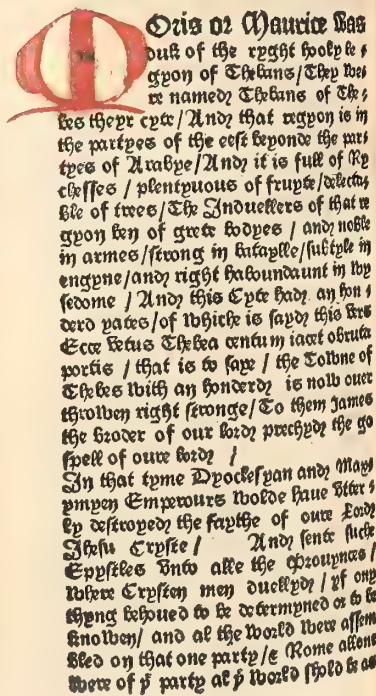 MOris or Maurice was
duk of the ryght hooly le /
gyon of Thebans / They we /
re named Thebans of The /
bes theyr cyte / And that regyon is in
the partyes of the eest beyonde the par /
tyes of Arabye / And it is full of Ry
chesses / plentyuous of fruyte / delecta /
ble of trees / The Induellers of that re
gyon ben of grete bodyes / and noble
in armes / strong in bataylle / subtyle in
engyne / and right haboundaunt in wy
sedome / And this Cyte had an hon /
derd yates / of whiche is sayd this vers
Ecce vetus Thebea centum iacet obruta
portis / that is to saye / the Towne of
Thebes with an honderd is now ouer
throwen right stronge / To them James
the broder of our lord prechyd the go
spell of oure lord /
In that tyme Dyoclesyan and Maxi
mpyen Emperours wolde haue vtter /
ly destroyed the faythe of oure Lord
Ihesu Cryste / And sente suche
Epystles vnto alle the Prouynces /
where Crysten men duellyd / yf ony
thyng behoued to be determyned or to be
knowen / and al the world were assem
bled on that one party / & Rome allone
were of þͤ party al þͤ world shold be as